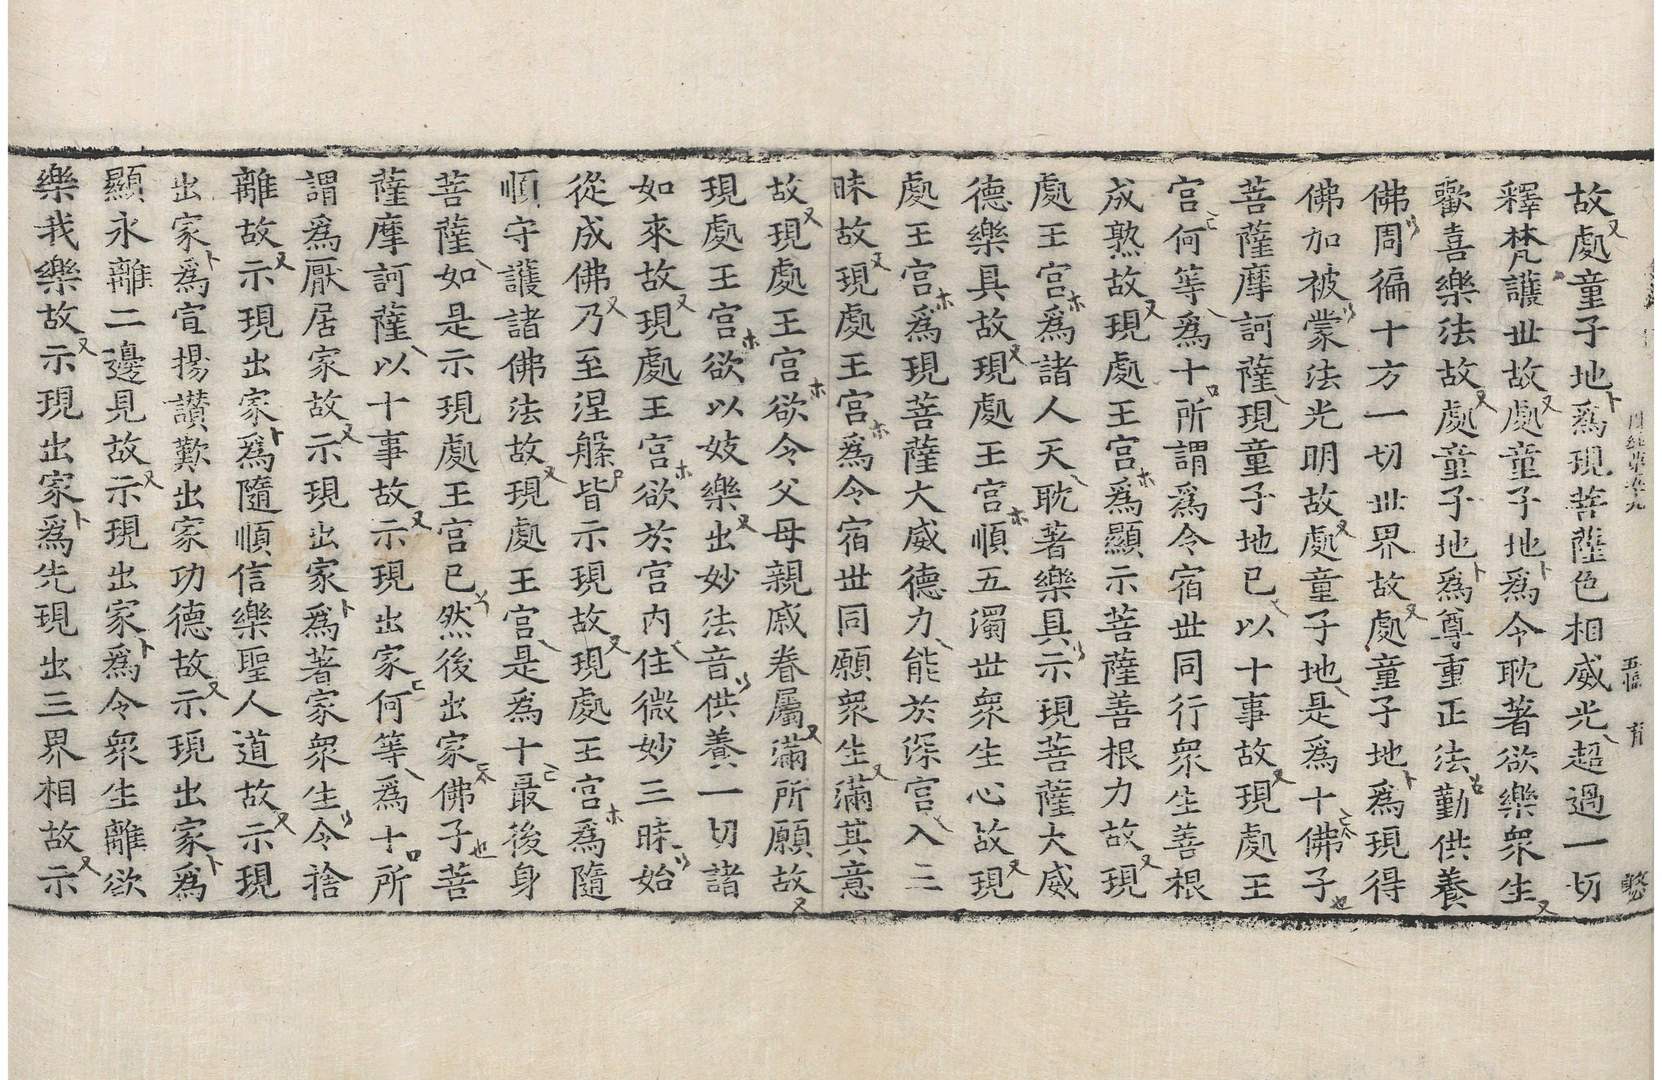 故處童子地爲現菩薩色相威光超過一切
釋梵護世故處童子地爲令耽著欲樂衆生
歡喜樂法故處童子地爲尊重正法勤供養
佛周徧十方一切世界故處童子地爲現得
佛加被蒙法光明故處童子地是爲十佛子
菩薩摩訶薩現童子地已以十事故現處王
宮何等爲十所謂爲令宿世同行衆生善根
成熟故現處王宮爲顯示菩薩善根力故現
處王宮爲諸人天耽著樂具示現菩薩大威
德樂具故現處王宮順五濁世衆生心故現
處王宮爲現菩薩大威德力能於深宮入三
昧故現處王宮爲令宿世同願衆生滿其意
故現處王宮欲令父母親戚眷屬滿所願故
現處王宮欲以妓樂出妙法音供養一切諸
如來故現處王宮欲於宮內住微妙三昧始
從成佛乃至涅槃皆示現故現處王宮爲隨
順守護諸佛法故現處王宮是爲十最後身
菩薩如是示現處王宮已然後出家佛子菩
薩摩訶薩以十事故示現出家何等爲十所
謂爲厭居家故示現出家爲著家衆生令捨
離故示現出家爲隨順信樂聖人道故示現
出家爲宣揚讃歎出家功德故示現出家爲
顯永離二邊見故示現出家爲令衆生離欲
樂我樂故示現出家爲先現出三界相故示